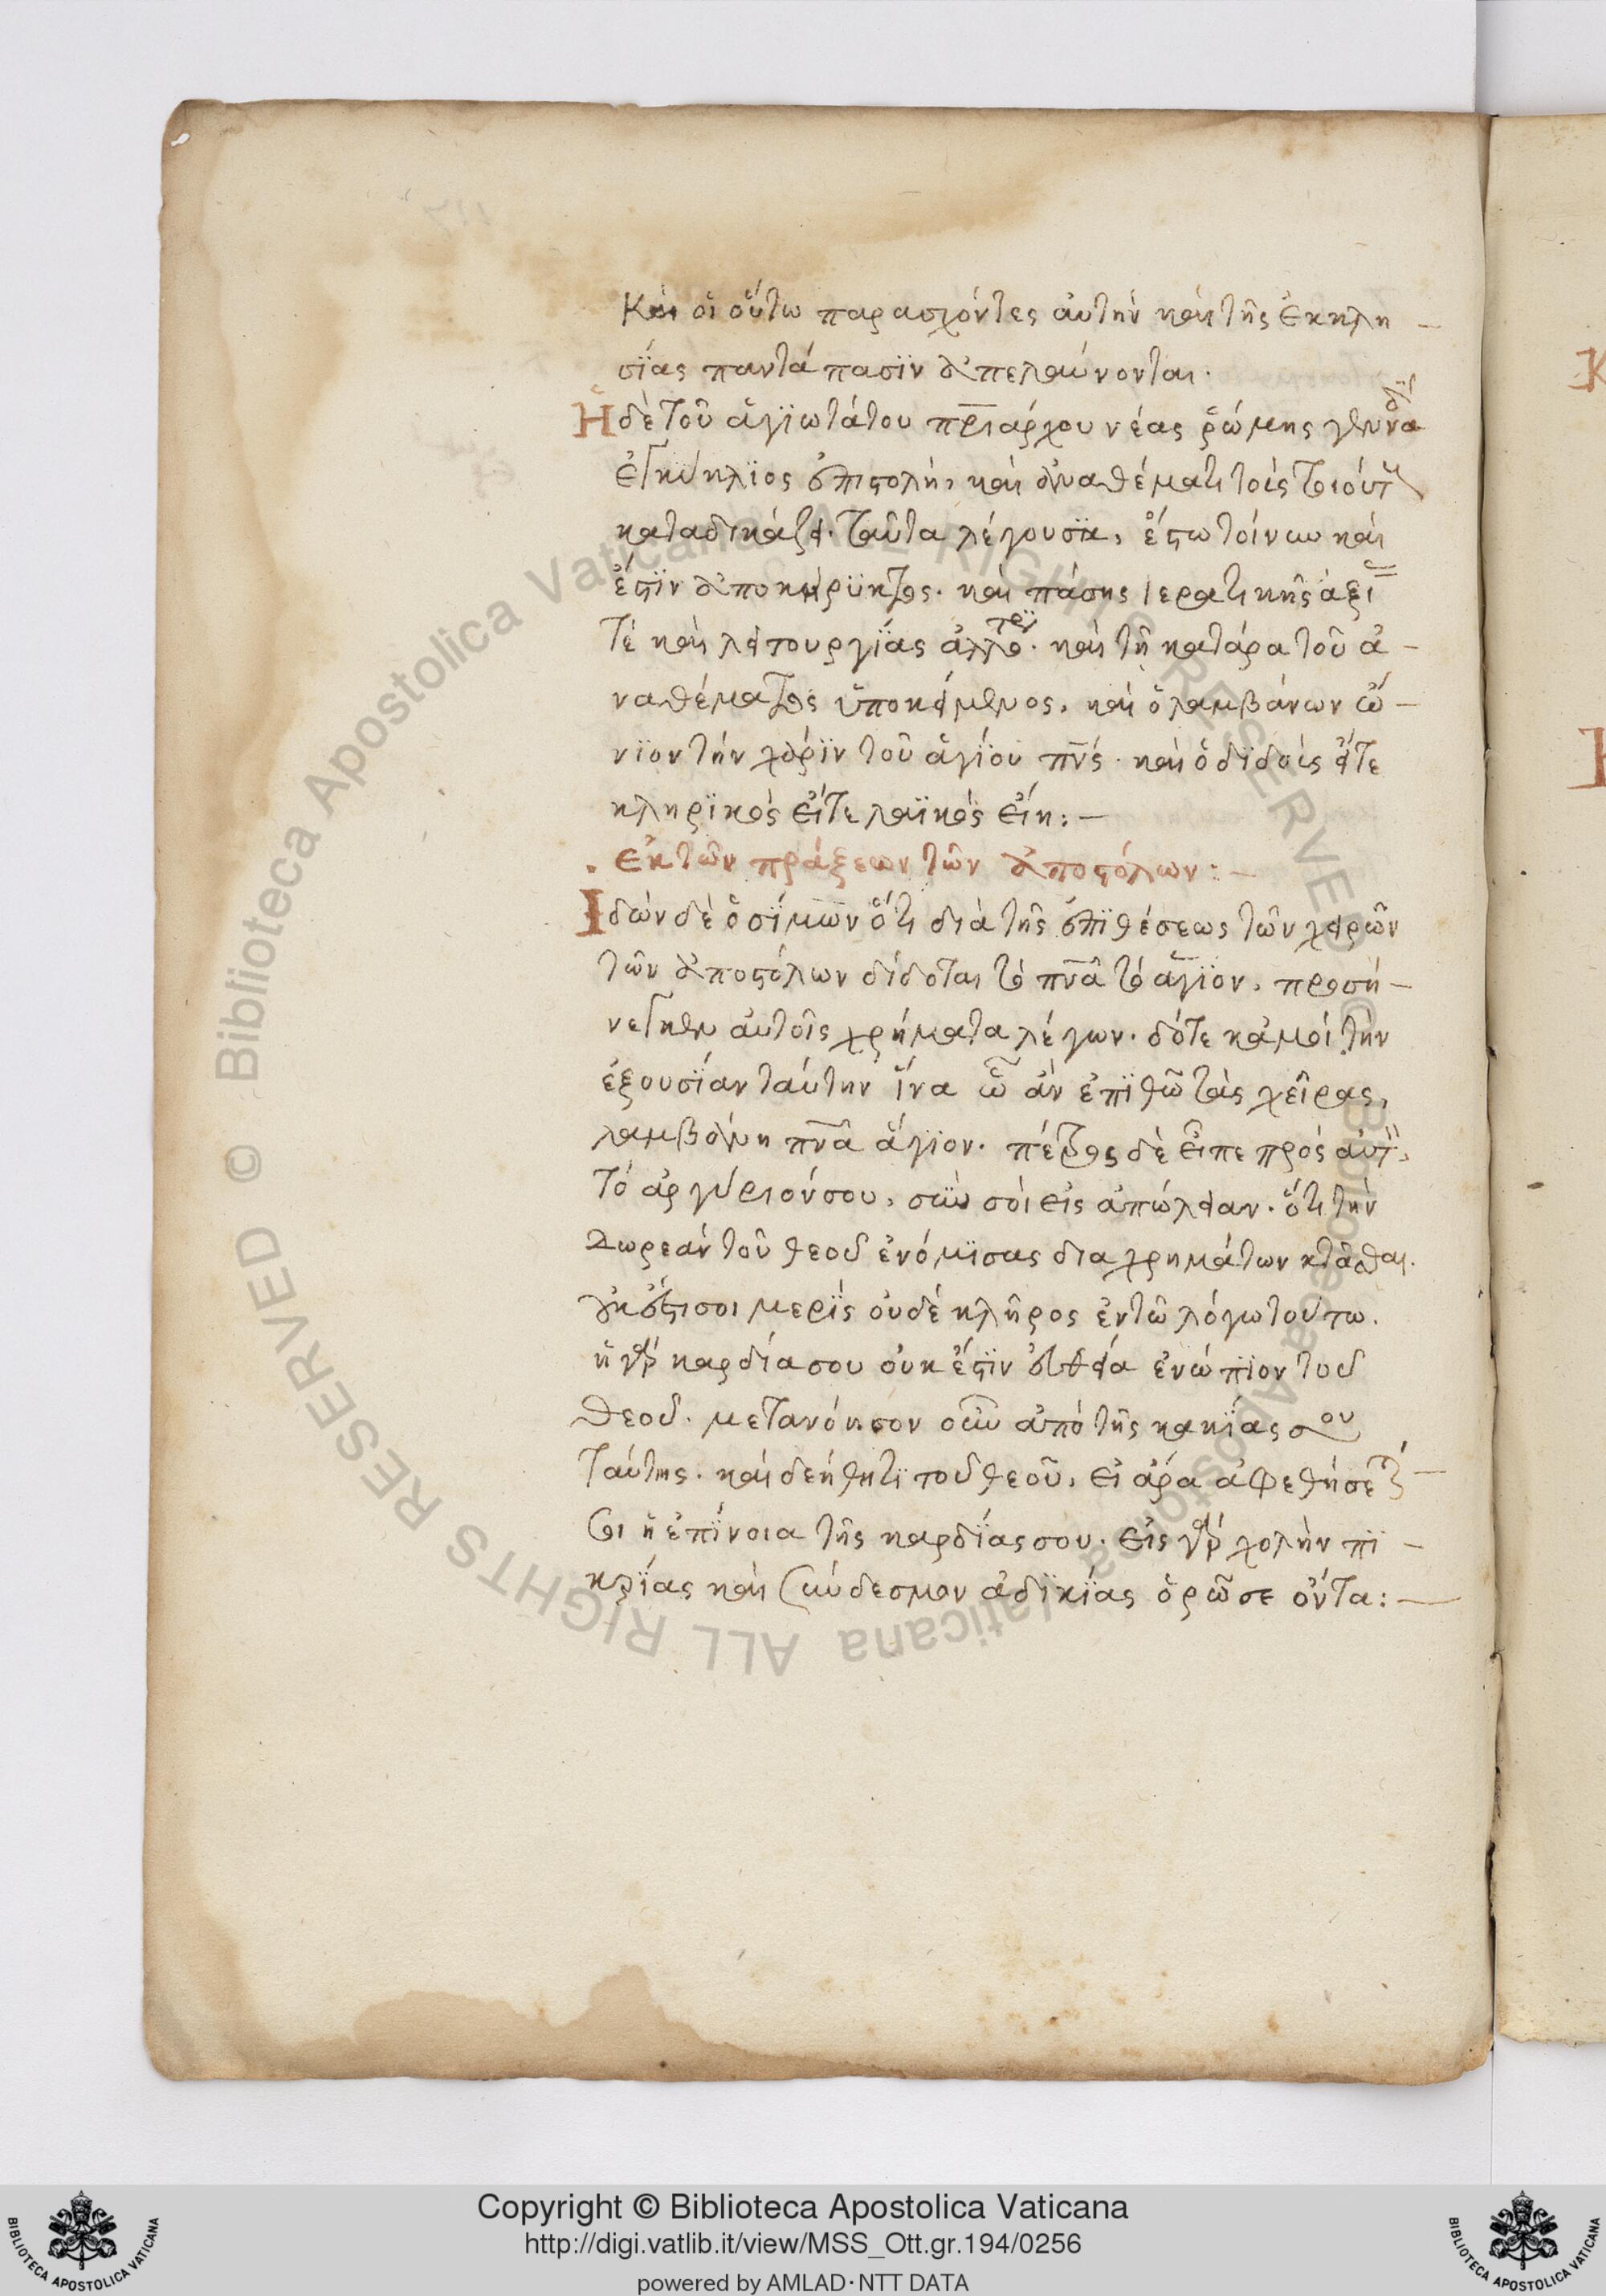 Καὶ οἱ οὕτω παρασχόντες αὐτὴν καὶ τῆς ἐκκλη-
σίας παντάπασϊν ἀπελαύνονται.
Ἡ δὲ τοῦ ἁγϊωτάτου πριάρχου νέας ῥώμης γεννα
ἐγκύκλϊος ἐπιστολή, καὶ ἀναθέματι τοὺς τοιούτ
καταδικάζει. ταῦτα λέγουσα, ἔστω τοίνυν καὶ
ἔστϊν ἀποκήρϋκτος. καὶ πάσης ἱερατικῆς ἀξί
τὲ καὶ λειτουργϊας ἀλλότρϊ. καὶ τῆ κατάρα τοῦ ἀ-
ναθέματος ὑποκείμενος, καὶ ὁ λαμβάνων ὤ-
νϊον τὴν χάρϊν τοῦ ἁγίου πνς. καὶ ὁ δϊδοὺς εἴτε
κληρϊκὸς εἴτε λαϊκὸς εἴη:—
. ἐκ τῶν πράξεων τῶν ἀποστόλων:—
Ἰδὼν δὲ ὁ σίμων ὅτι διὰ τῆς ἐπϊθέσεως τῶν χειρῶν
τῶν ἀποστόλων δίδοται τὸ πνα τὸ ἅγϊον, προσή-
νεγκεν αὐτοῖς χρήματα λέγων. δότε κἀμοὶ τὴν
ἐξουσίαν ταύτην ἵνα ᾧ ἂν ἐπϊθῶ τὰς χεῖρας,
λαμβάνη πνα ἅγϊον. πέτρος δὲ εἶπε πρὸς αὐτ,
Τὸ ἀργύριόν σου, σὺν σοὶ εἰς ἀπώλειαν. ὅτι τὴν
δωρεὰν τοῦ θεοῦ ἐνόμϊσας δια χρημάτων κτᾶσθαι.
οὐκ ἔστι σοι μερὶς οὐδὲ κλῆρος ἐν τῶ λόγω τούτω.
ἡ γὰρ καρδία σου οὐκ ἔστϊν εὐθεία ἐνώπϊον τοῦ
θεοῦ. μετανόησον οὖν ἀπὸ τῆς κακίας σου
ταύτης. καὶ δεήθητϊ τοῦ θεοῦ, εἰ ἄρα ἀφεθήσεται
σοι ἡ ἐπίνοια τῆς καρδίας σου. εἰς γὰρ χολὴν πϊ-
κρίας καὶ σύνδεσμον ἀδϊκίας ὁρῶ σε ὄντα:—
Copyright © Biblioteca Apostolica Vaticana
http://digi.vatlib.it/view/MSS_Ott.gr.194/0256
powered by AMLAD·NTT DATA